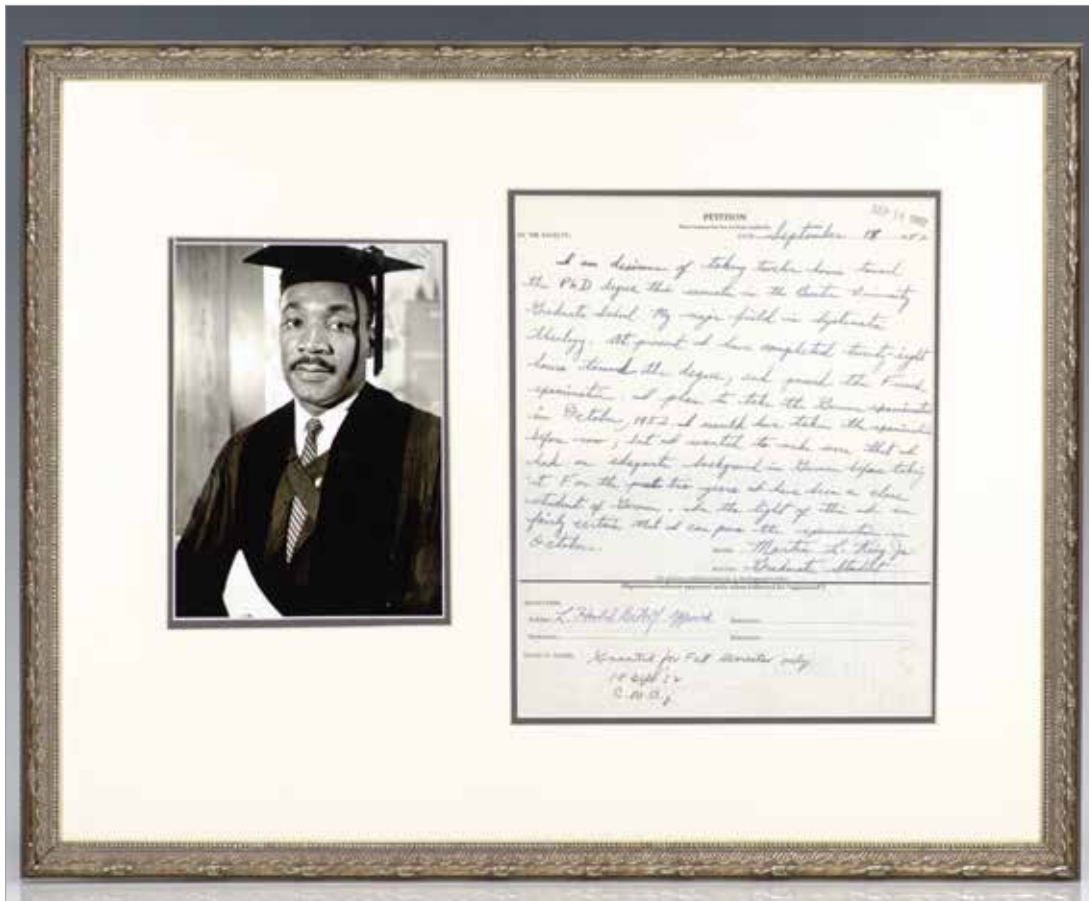 PETITION
TO THE FACULTY: DATE September 18 1952
SEP 18 1952
I am desirous of taking twelve hours toward
the PhD degree this semester in the Boston University
Graduate School. My major field is Systematic
theology. At present I have completed twenty-eight
hours toward the degree, and passed the French
examination. I plan to take the German examination
in October, 1952. I would have taken the examination
before now, but I wanted to make sure that I
had an adequate background in German before taking
it. For the past two years I have been a close
student of German. In the light of this I am
fairly certain that I can pass the examination in
October.
Martin L. King Jr
Graduate Student
L. Harold DeWolf approved
Granted for Fall semester only
18 Sept 52